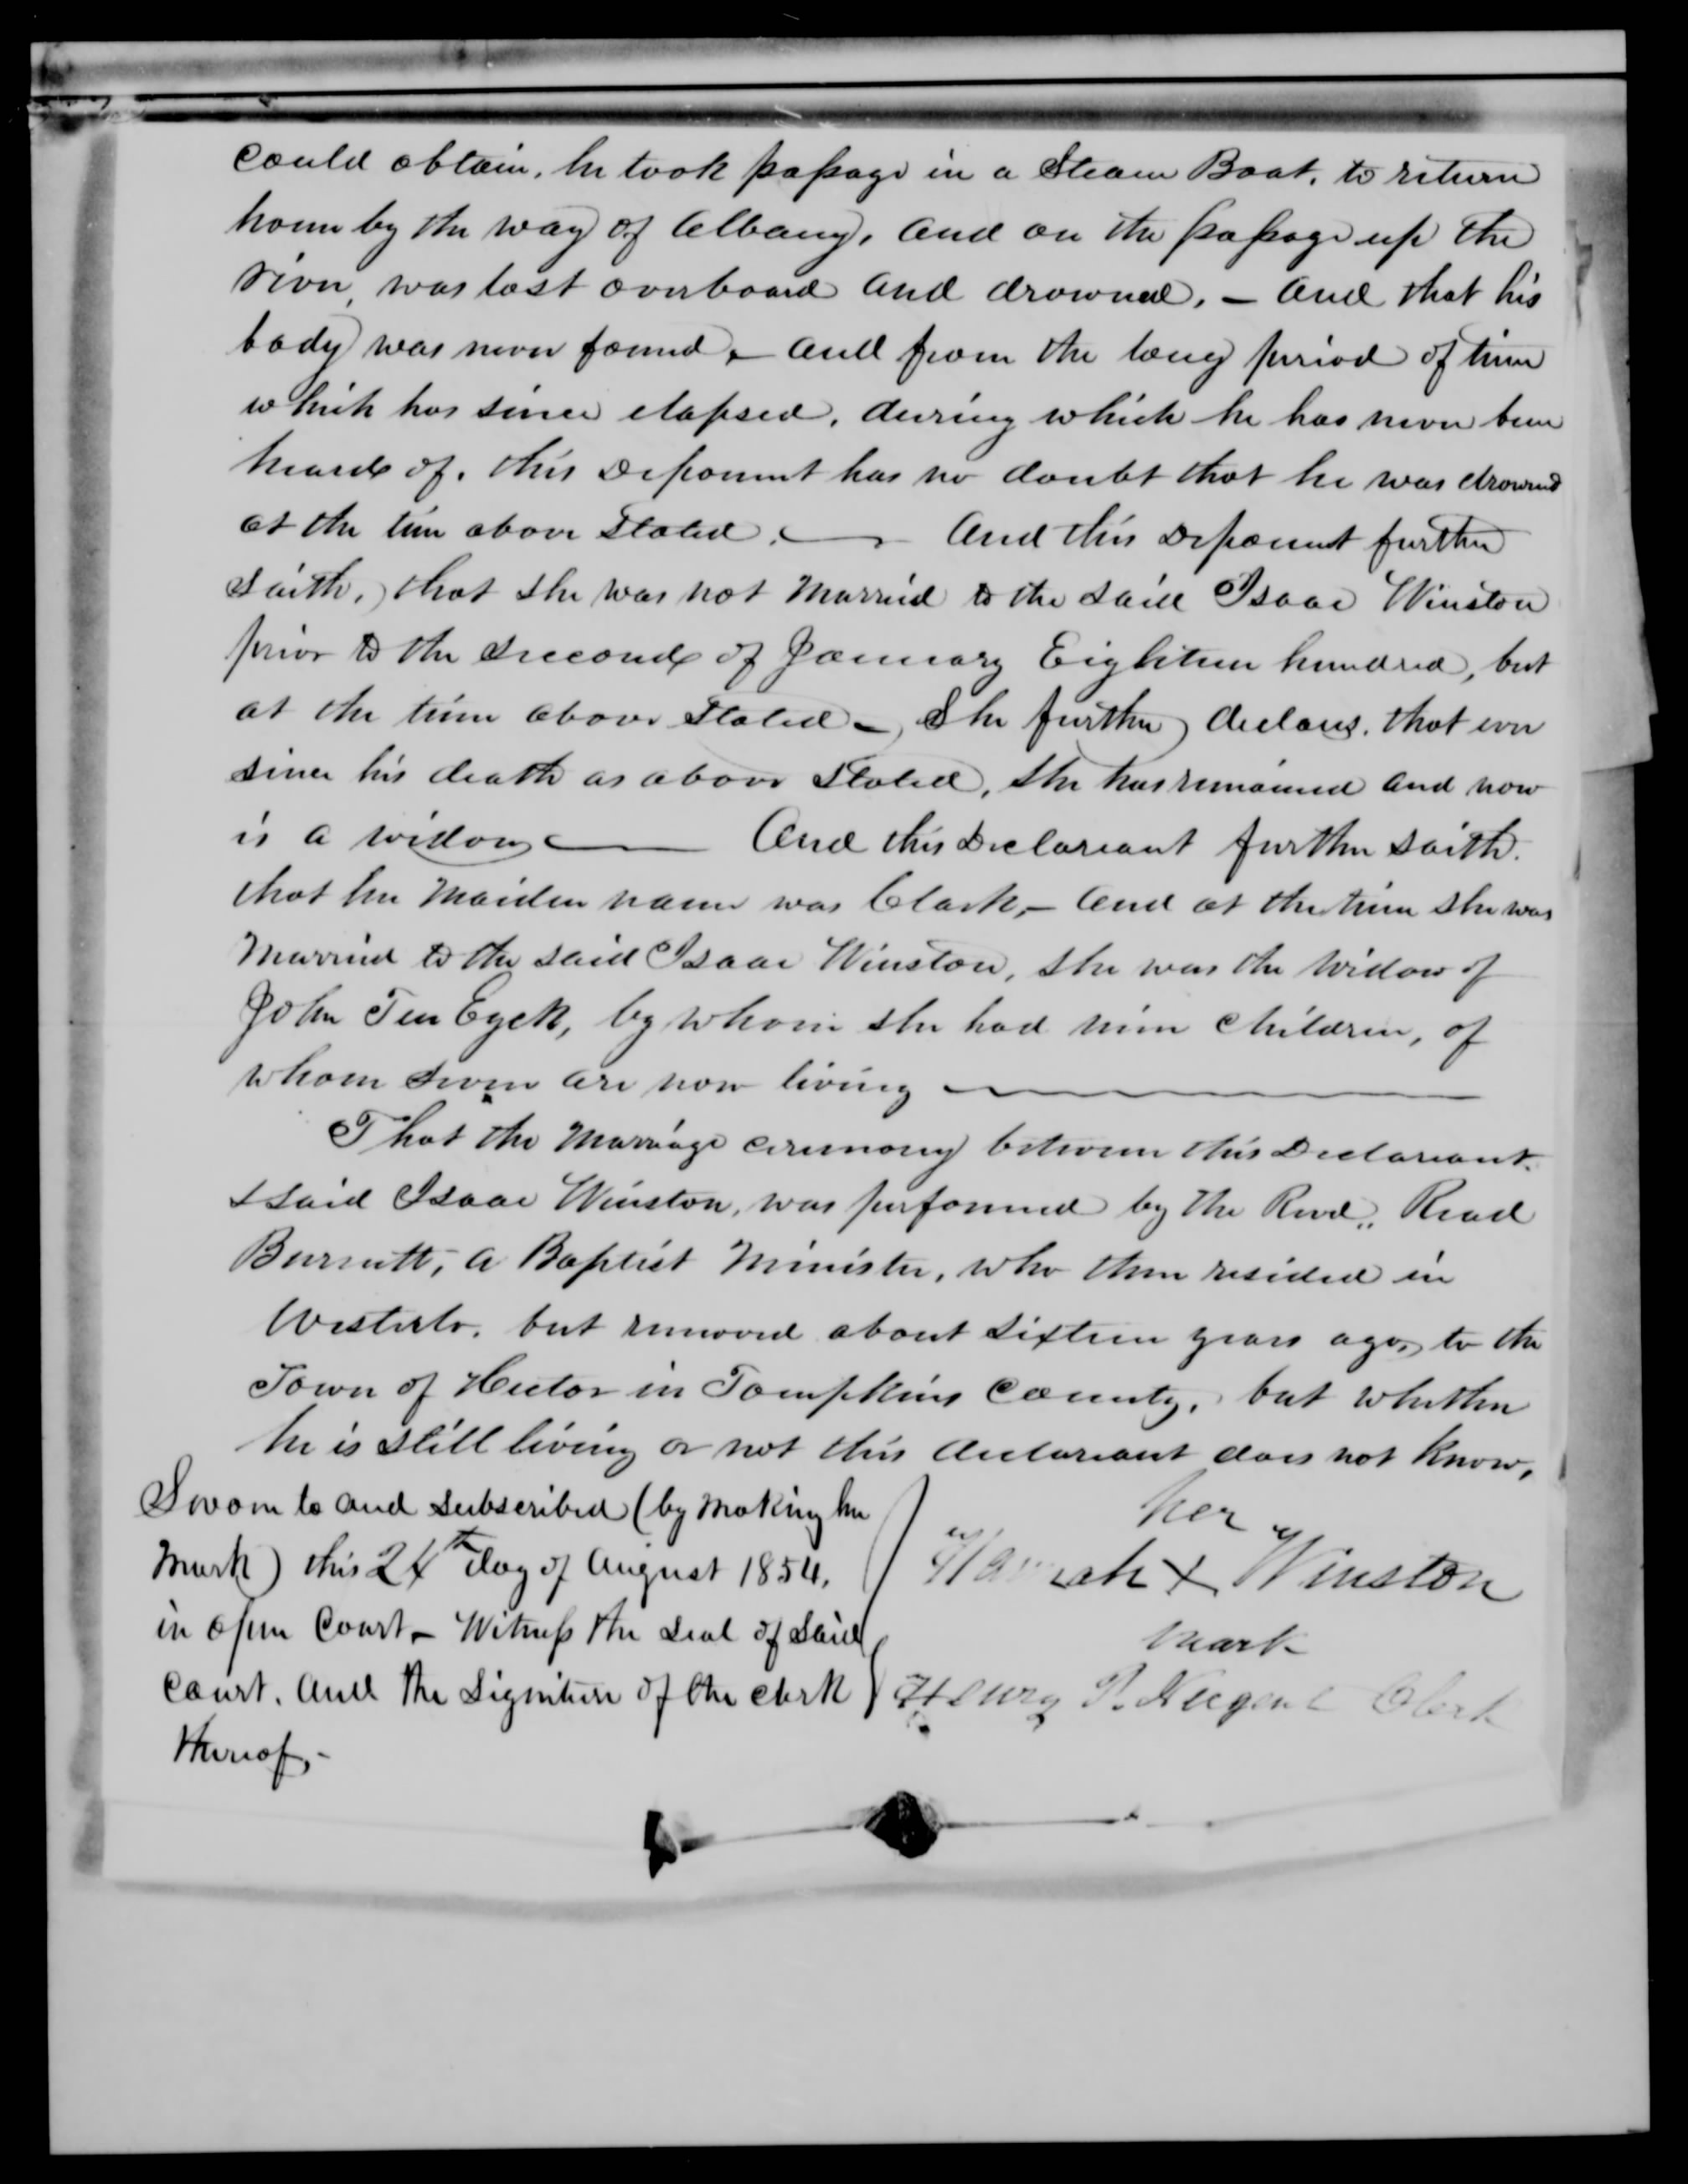 could obtain, he took passage in a Steam Boat, to return
home by the way of Albany, and on the passage up the
river, was lost overboard and drowned, – and that his
body was never found, – and from the long period of time
which has since elapsed, during which he has never been
heard of, this Deponent has no doubt that he was drowned
at the time above Stated. — And this Deponent further
Saith, that she was not Married to the said Isaac Winston
prior to the Second of January Eighteen hundred, but
at the time above Stated – She further declares, that ever
since his death as above Stated, she has remained and now
is a widow — And this Declarant further saith.
that her Maiden name was Clark, – And at the time she was
Married to the said Isaac Winston, she was the widow of
John Ten Eyck, by whom she had nine children, of
whom Seven are now living —
That the Marriage ceremony between this Declarant
& said Isaac Winston, was performed by the Revd. Read
Burritt, a Baptist Minister, who then resided in
Westerlo, but removed about sixteen years ago, to the
Town of Hector in Tompkins County, but whether
he is still living or not this declarant does not know,
Sworn to and subscribed (by making her
Mark) this 24th day of August 1854,
in open Court – Witness the seal of said
Court, and the Signiture of the clerk
thereof, –
her
Hannah X Winston
mark
Henry P. Nugent Clerk